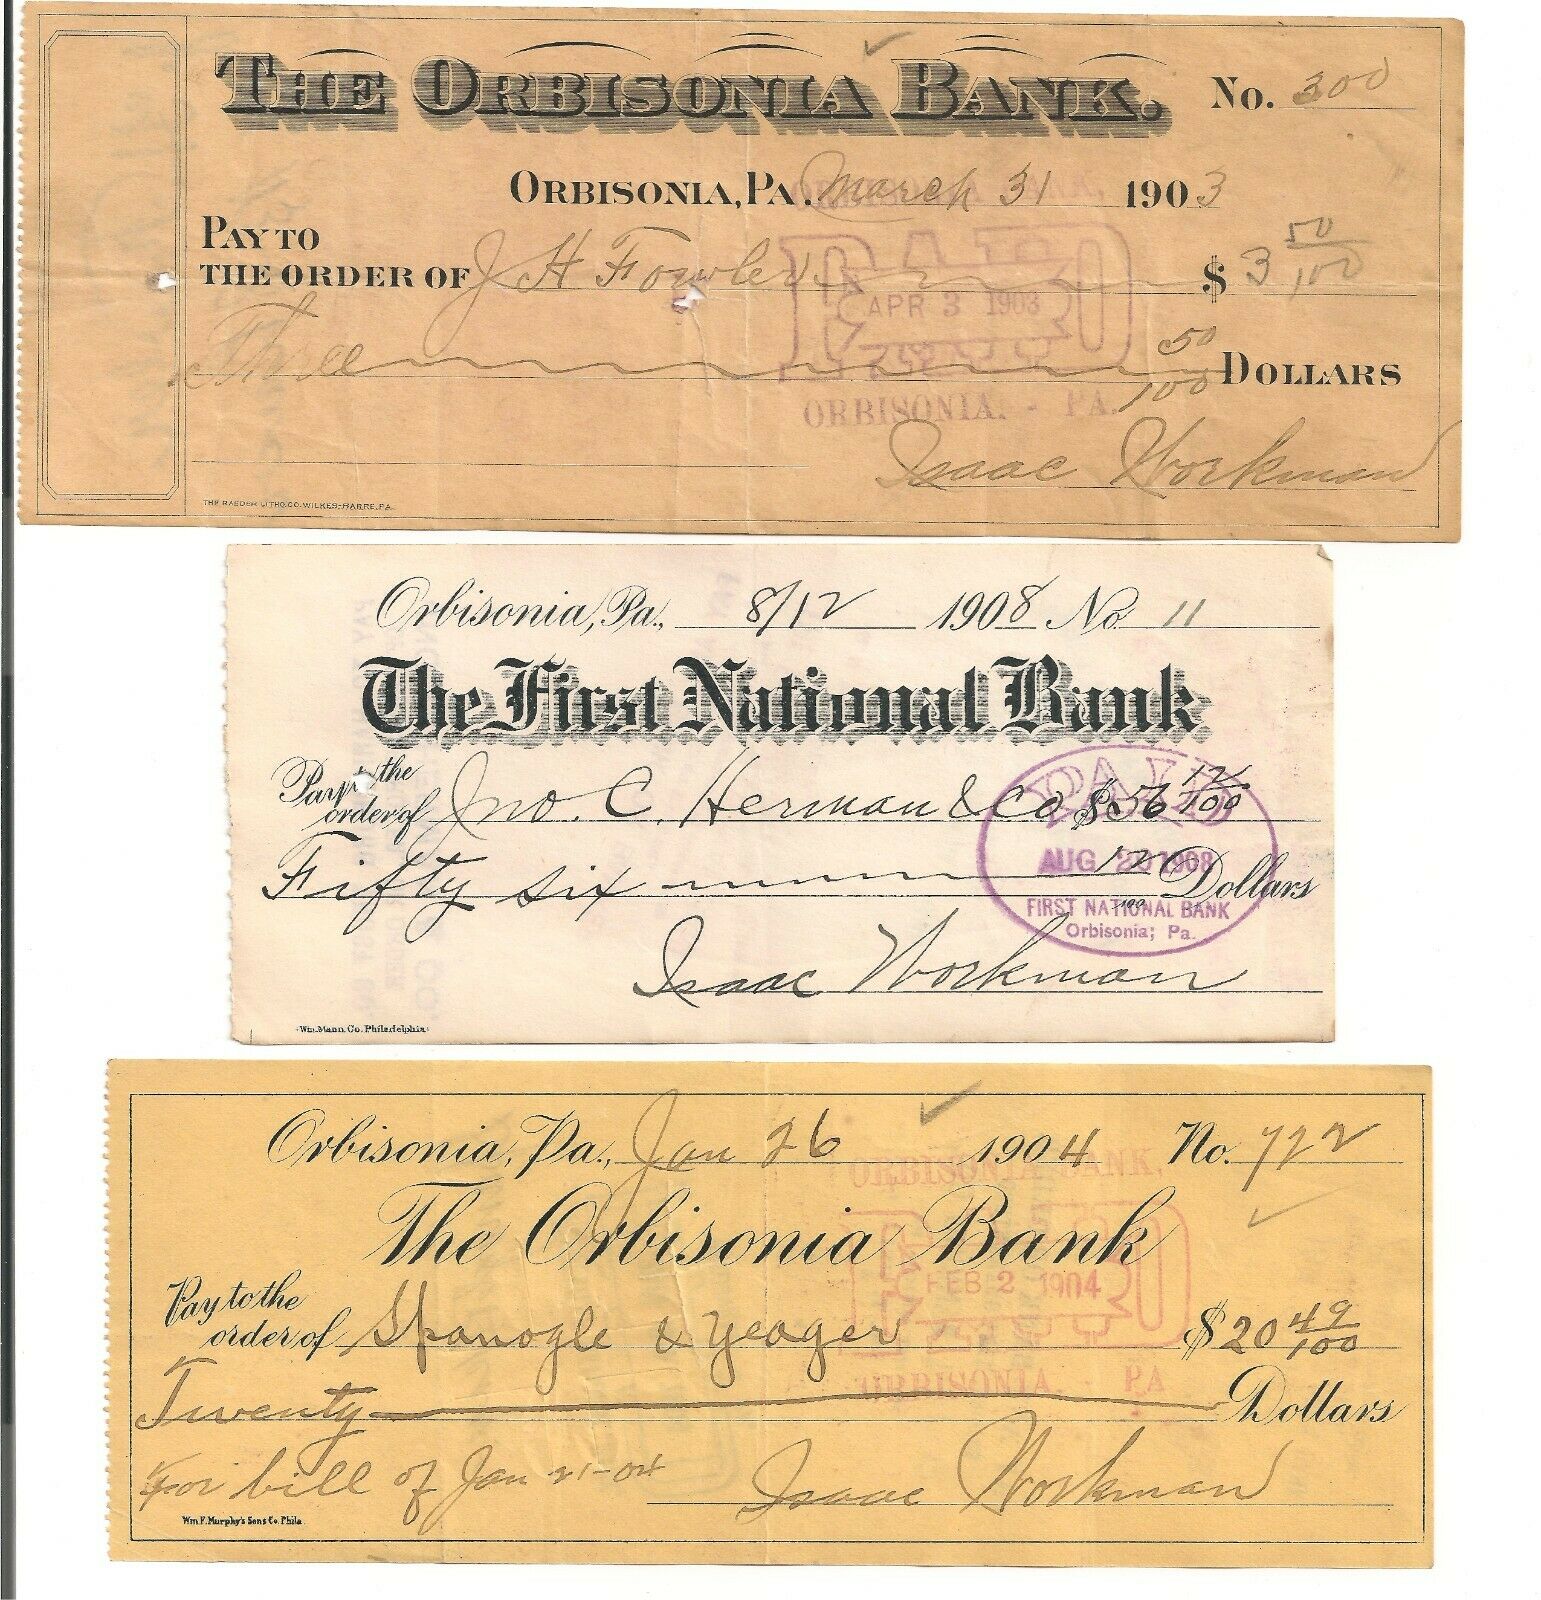 THE ORBISONIA BANK. No. 300
ORBISONIA, PA. March 31 1903
PAY TO
THE ORDER OF J H Fowler $ 3 50/100
Three 50/100 DOLLARS
Isaac Workman
ORBISONIA BANK,
PAID
APR 3 1903
ORBISONIA. - PA.
THE RAEDER LITHO. CO. WILKES-BARRE, PA.
Orbisonia, Pa., 8/12 1908 No. 11
The First National Bank
Pay to the
order of Jno. C. Herman & Co $ 56 12/100
Fifty six 12/100 Dollars
Isaac Workman
PAID
AUG 20 1908
FIRST NATIONAL BANK
Orbisonia, Pa.
Wm. Mann Co. Philadelphia
Orbisonia, Pa., Jan 26 1904 No. 722
The Orbisonia Bank
Pay to the
order of Spanogle & Yeager $ 20 49/100
Twenty Dollars
For bill of Jan 21-04 Isaac Workman
ORBISONIA BANK,
PAID
FEB 2 1904
ORBISONIA. - PA
Wm F. Murphy's Sons Co. Phila